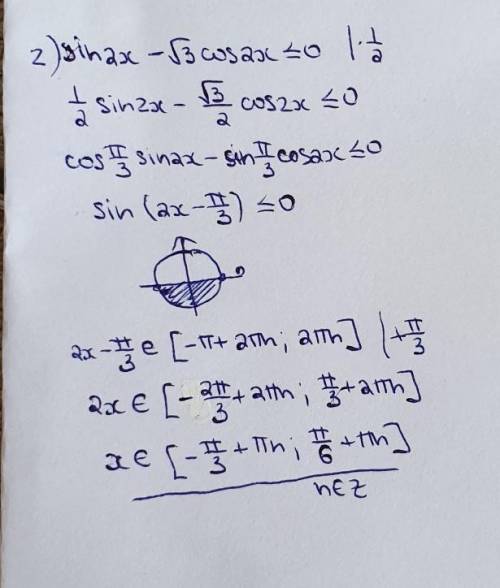 2) sin2x - √3 cos2x ≤ 0 | · 1/2
1/2 sin2x - √3/2 cos2x ≤ 0
cos π/3 sin2x - sin π/3 cos2x ≤ 0
sin (2x - π/3) ≤ 0
0
2x - π/3 ∈ [-π + 2πn; 2πn] | + π/3
2x ∈ [-2π/3 + 2πn; π/3 + 2πn]
x ∈ [-π/3 + πn; π/6 + πn]
n∈Z